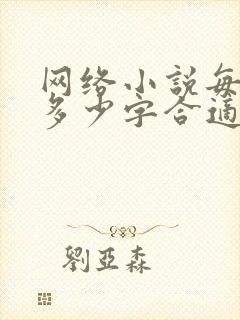 网络小説每
多少字合適
劉亞森